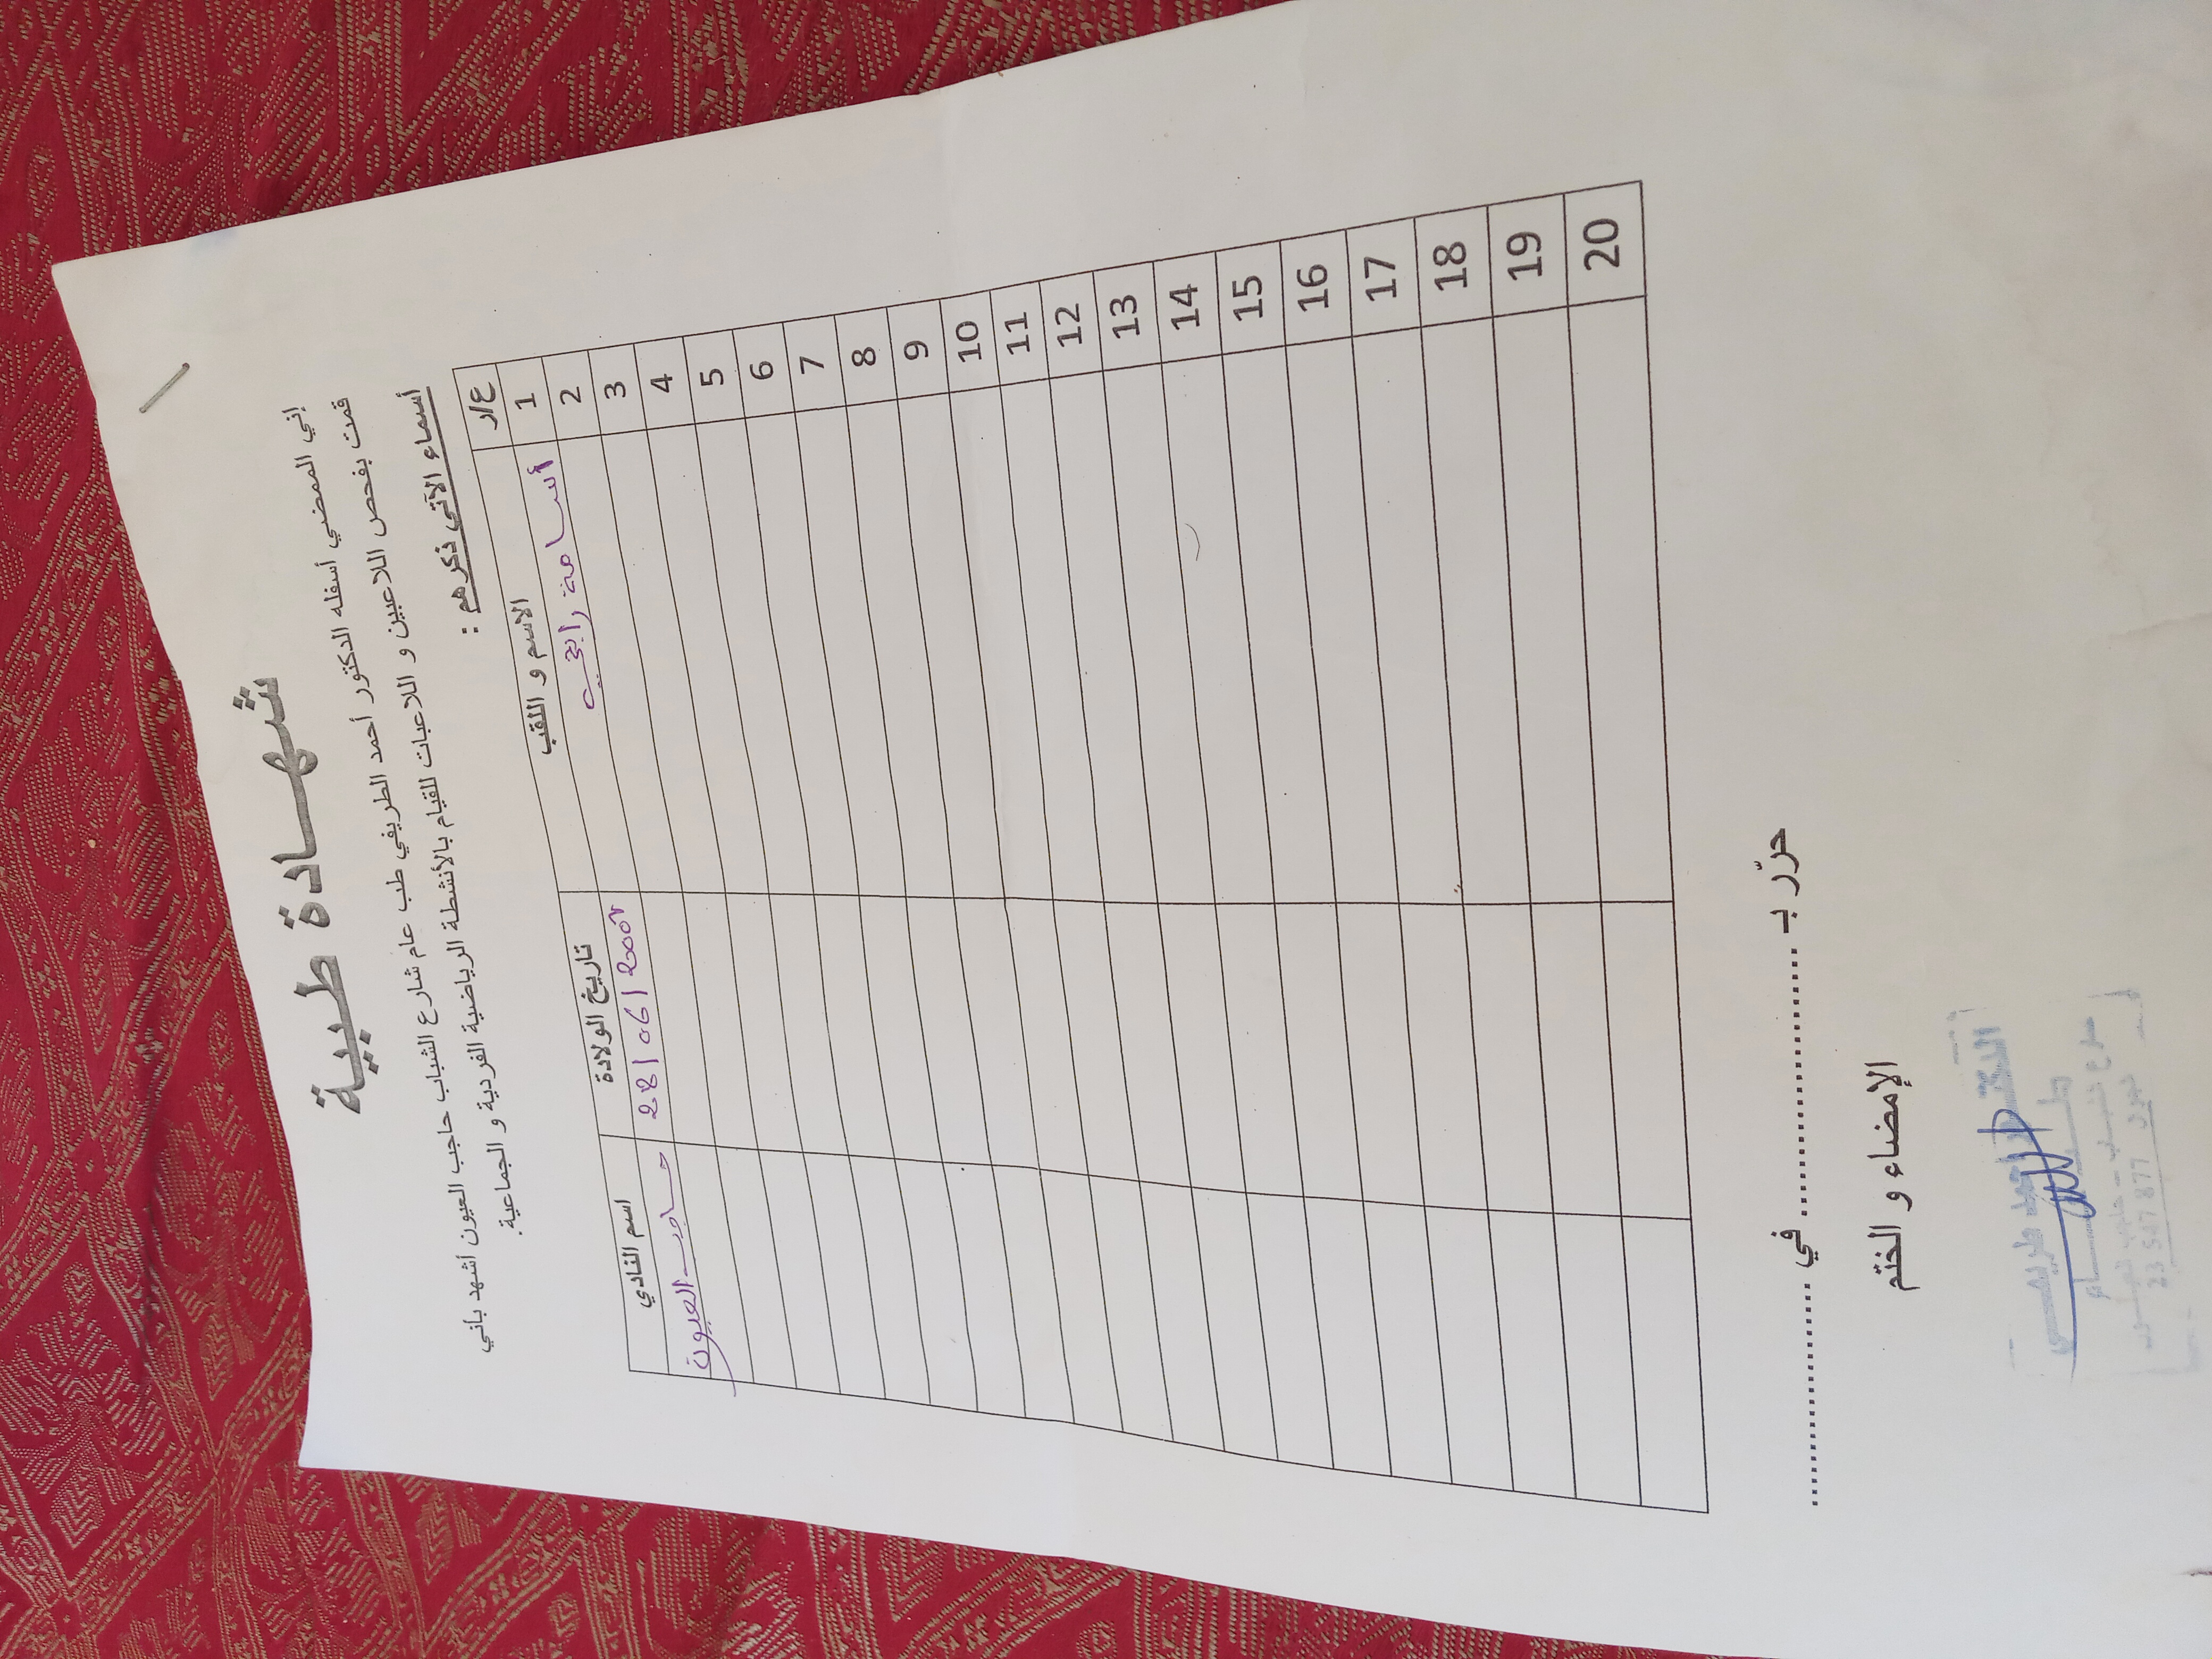 شهادة طبية
إني الممضي أسفله الدكتور أحمد الطريفي طب عام شارع الشباب حاجب العيون أشهد بأني
قمت بفحص اللاعبين و اللاعبات للقيام بالأنشطة الرياضية الفردية و الجماعية.
أسماء الآتي ذكرهم :
ع/ر الاسم و اللقب تاريخ الولادة اسم النادي
1 أسامة راجحي 28/06/2002 حاجب العيون
2
3
4
5
6
7
8
9
10
11
12
13
14
15
16
17
18
19
20
حرّر بـ .............................. في ......................
الإمضاء و الختم
الدكتور أحمد طريفي
طب عام
شارع الشباب - حاجب العيون
23 547 877